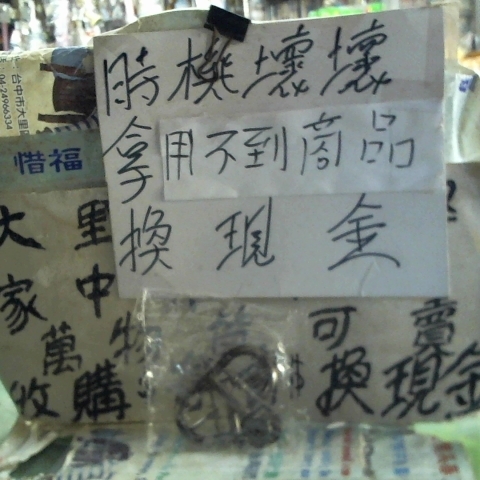 時機壞壞
拿用不到商品
換現金
台中市大里區
04-24966334
惜福
大里
家中
萬物
可賣
收購
換現金